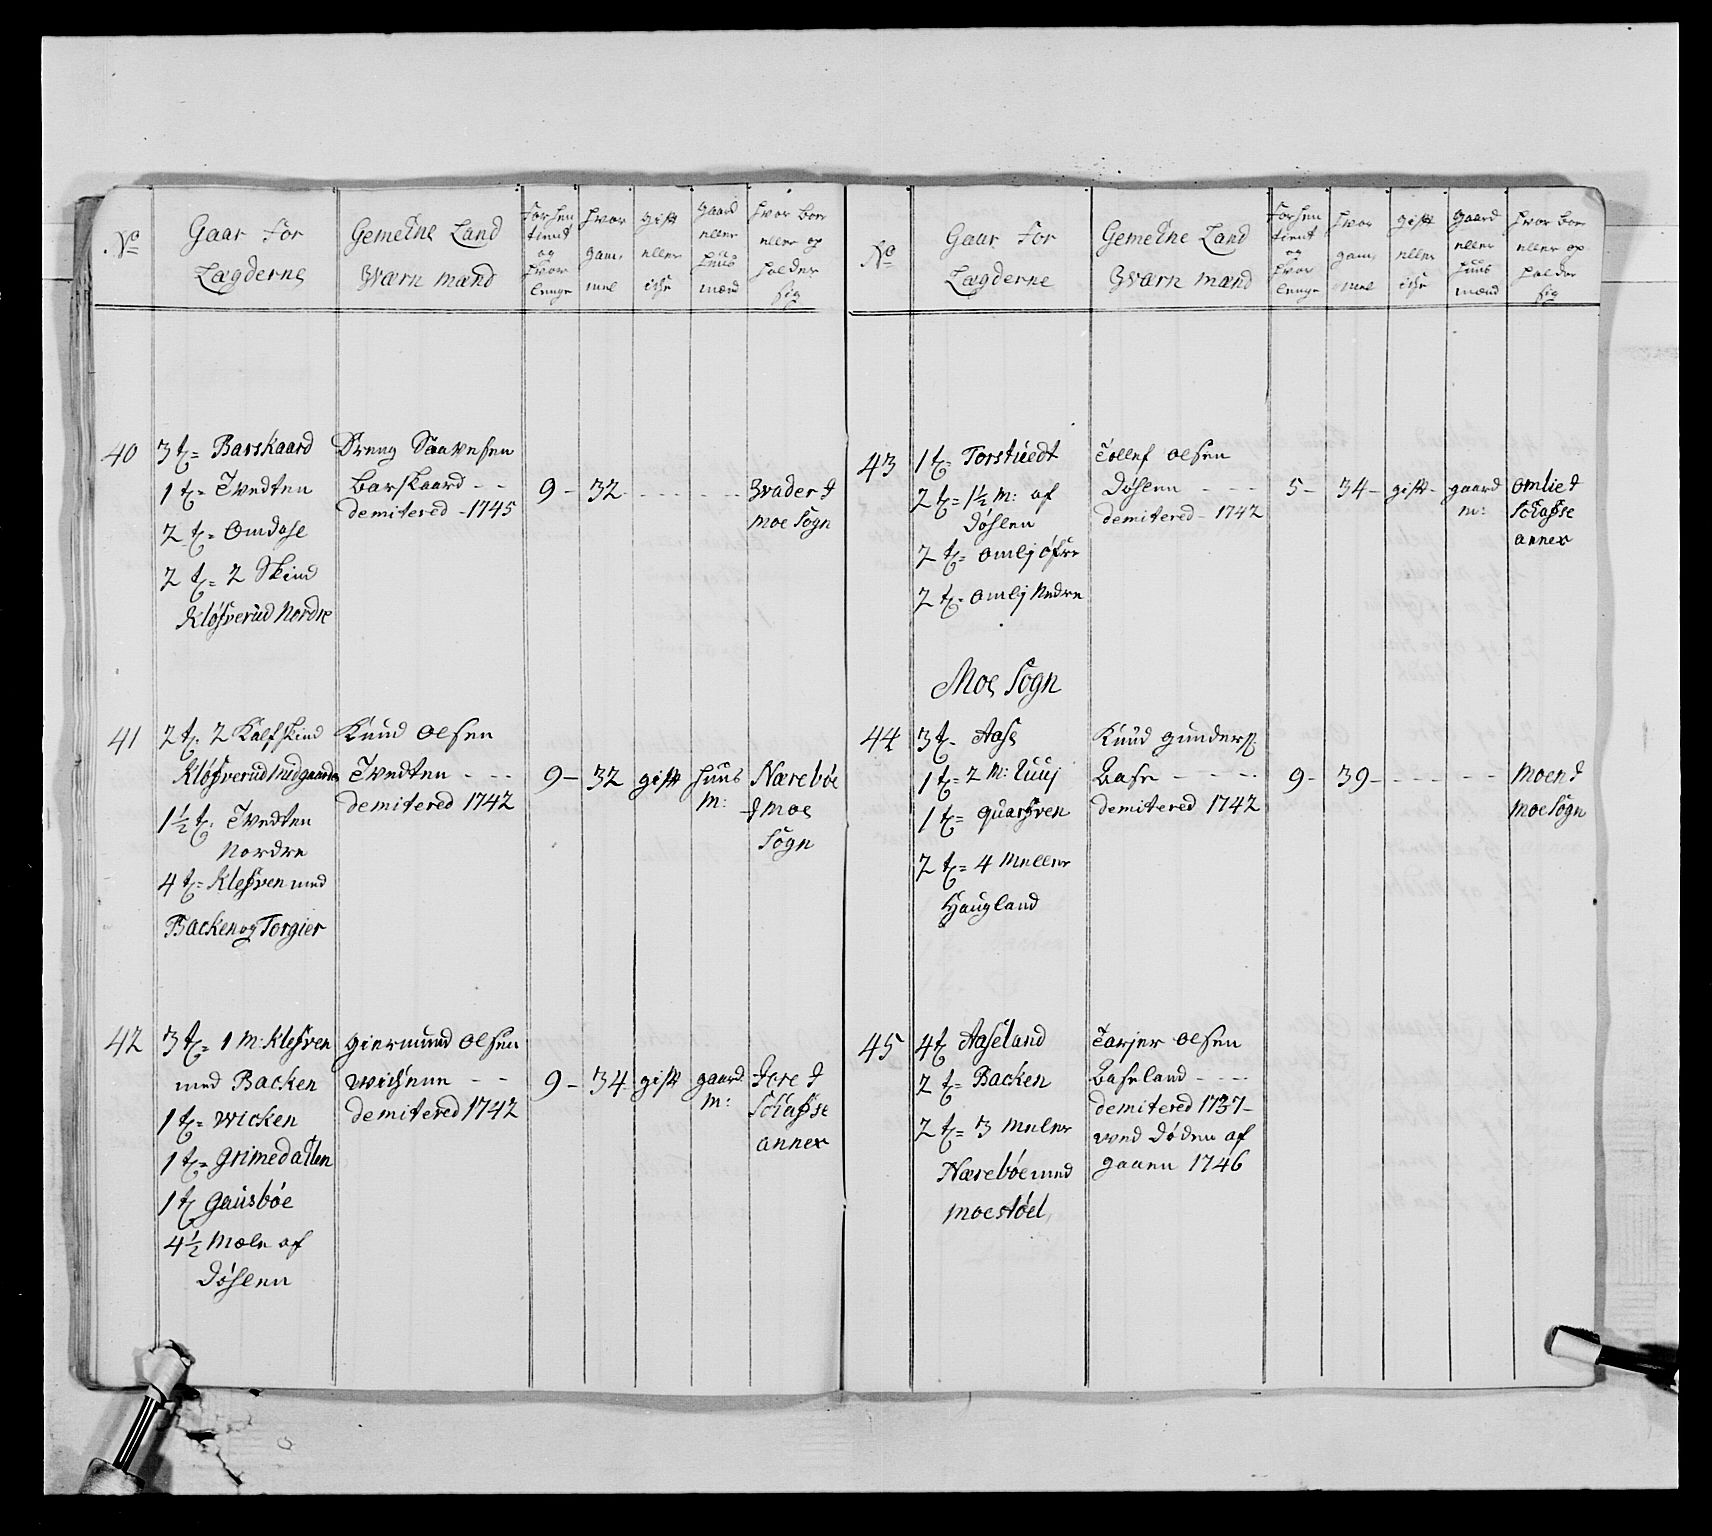 No
Gaar For
Lægderne
Gemeine Land
Wærn mænd
Forhen
tient
og
hvor
lenge
hvor
gam,
mel
gift
eller
iche
gaard
eller
huus
mænd
hvor boer
eller op
holder
sig
40
3 t= Barskaard
1 t= Tvedten
2 t= Omdahl
2 t= 2 Skind
Kløfverud Nordre
Dreng Saavesen
Barskaard - -
demitered - 1745
9 - 32 - - - - - - -
Vrader i
Moe Sogn
41
2 t. 2 Kalfskind
Kløfverud midgaarden
1½ t. Tvedten
Nordre
4 t= Klefven med
Backen og Torgier
Knud Olsen
Tvedten - - -
demitered 1742
9 - 32 gift huus
m:
Nærebøe
i Moe
Sogn
42
3 t= 1 M: Klefven
med Backen
1 t= Wicken
1 t= Grimedallen
1 t Gausbøe
4½ Mæle af
Døhlen
Giermund Olsen
Wichenn - -
demitered 1742
9 - 34 gift gaard
m:
i
Schafse
annex
No
Gaar For
Lægderne
Gemeine Land
Wærn mænd
Forhen
tient
og
hvor
lenge
hvor
gam,
mel
gift
eller
iche
gaard
eller
huus
mænd
hvor boer
eller op
holder
sig
43
1 t= Torstvedt
2 t= 1½ m: af
Døhlen
2 t= Omlj øfre
2 t= Omlj Nedre
Tollef Olsen
Døhlenn - - -
demitered - 1742
5 - 34 - gift - gaard
m:
Omlie i
Schafse
annex
Moe Sogn
44
3 t- Aase
1 t= 2 M: Luuj
1 t= Quarfven
2 t= 4 Meller
Haugland
Knud Gunders
Aase - - - -
demitered 1742
9 - 39 - - - - -
Moen i
Moe Sogn
45
4 t Aaseland
2 t= Backen
2 t= 3 Meler
Nærebøe med
Moestøel,
Tarjer Olsen
Aaseland - - - -
demitered 1737 -
ved Døden af
gaaen 1746